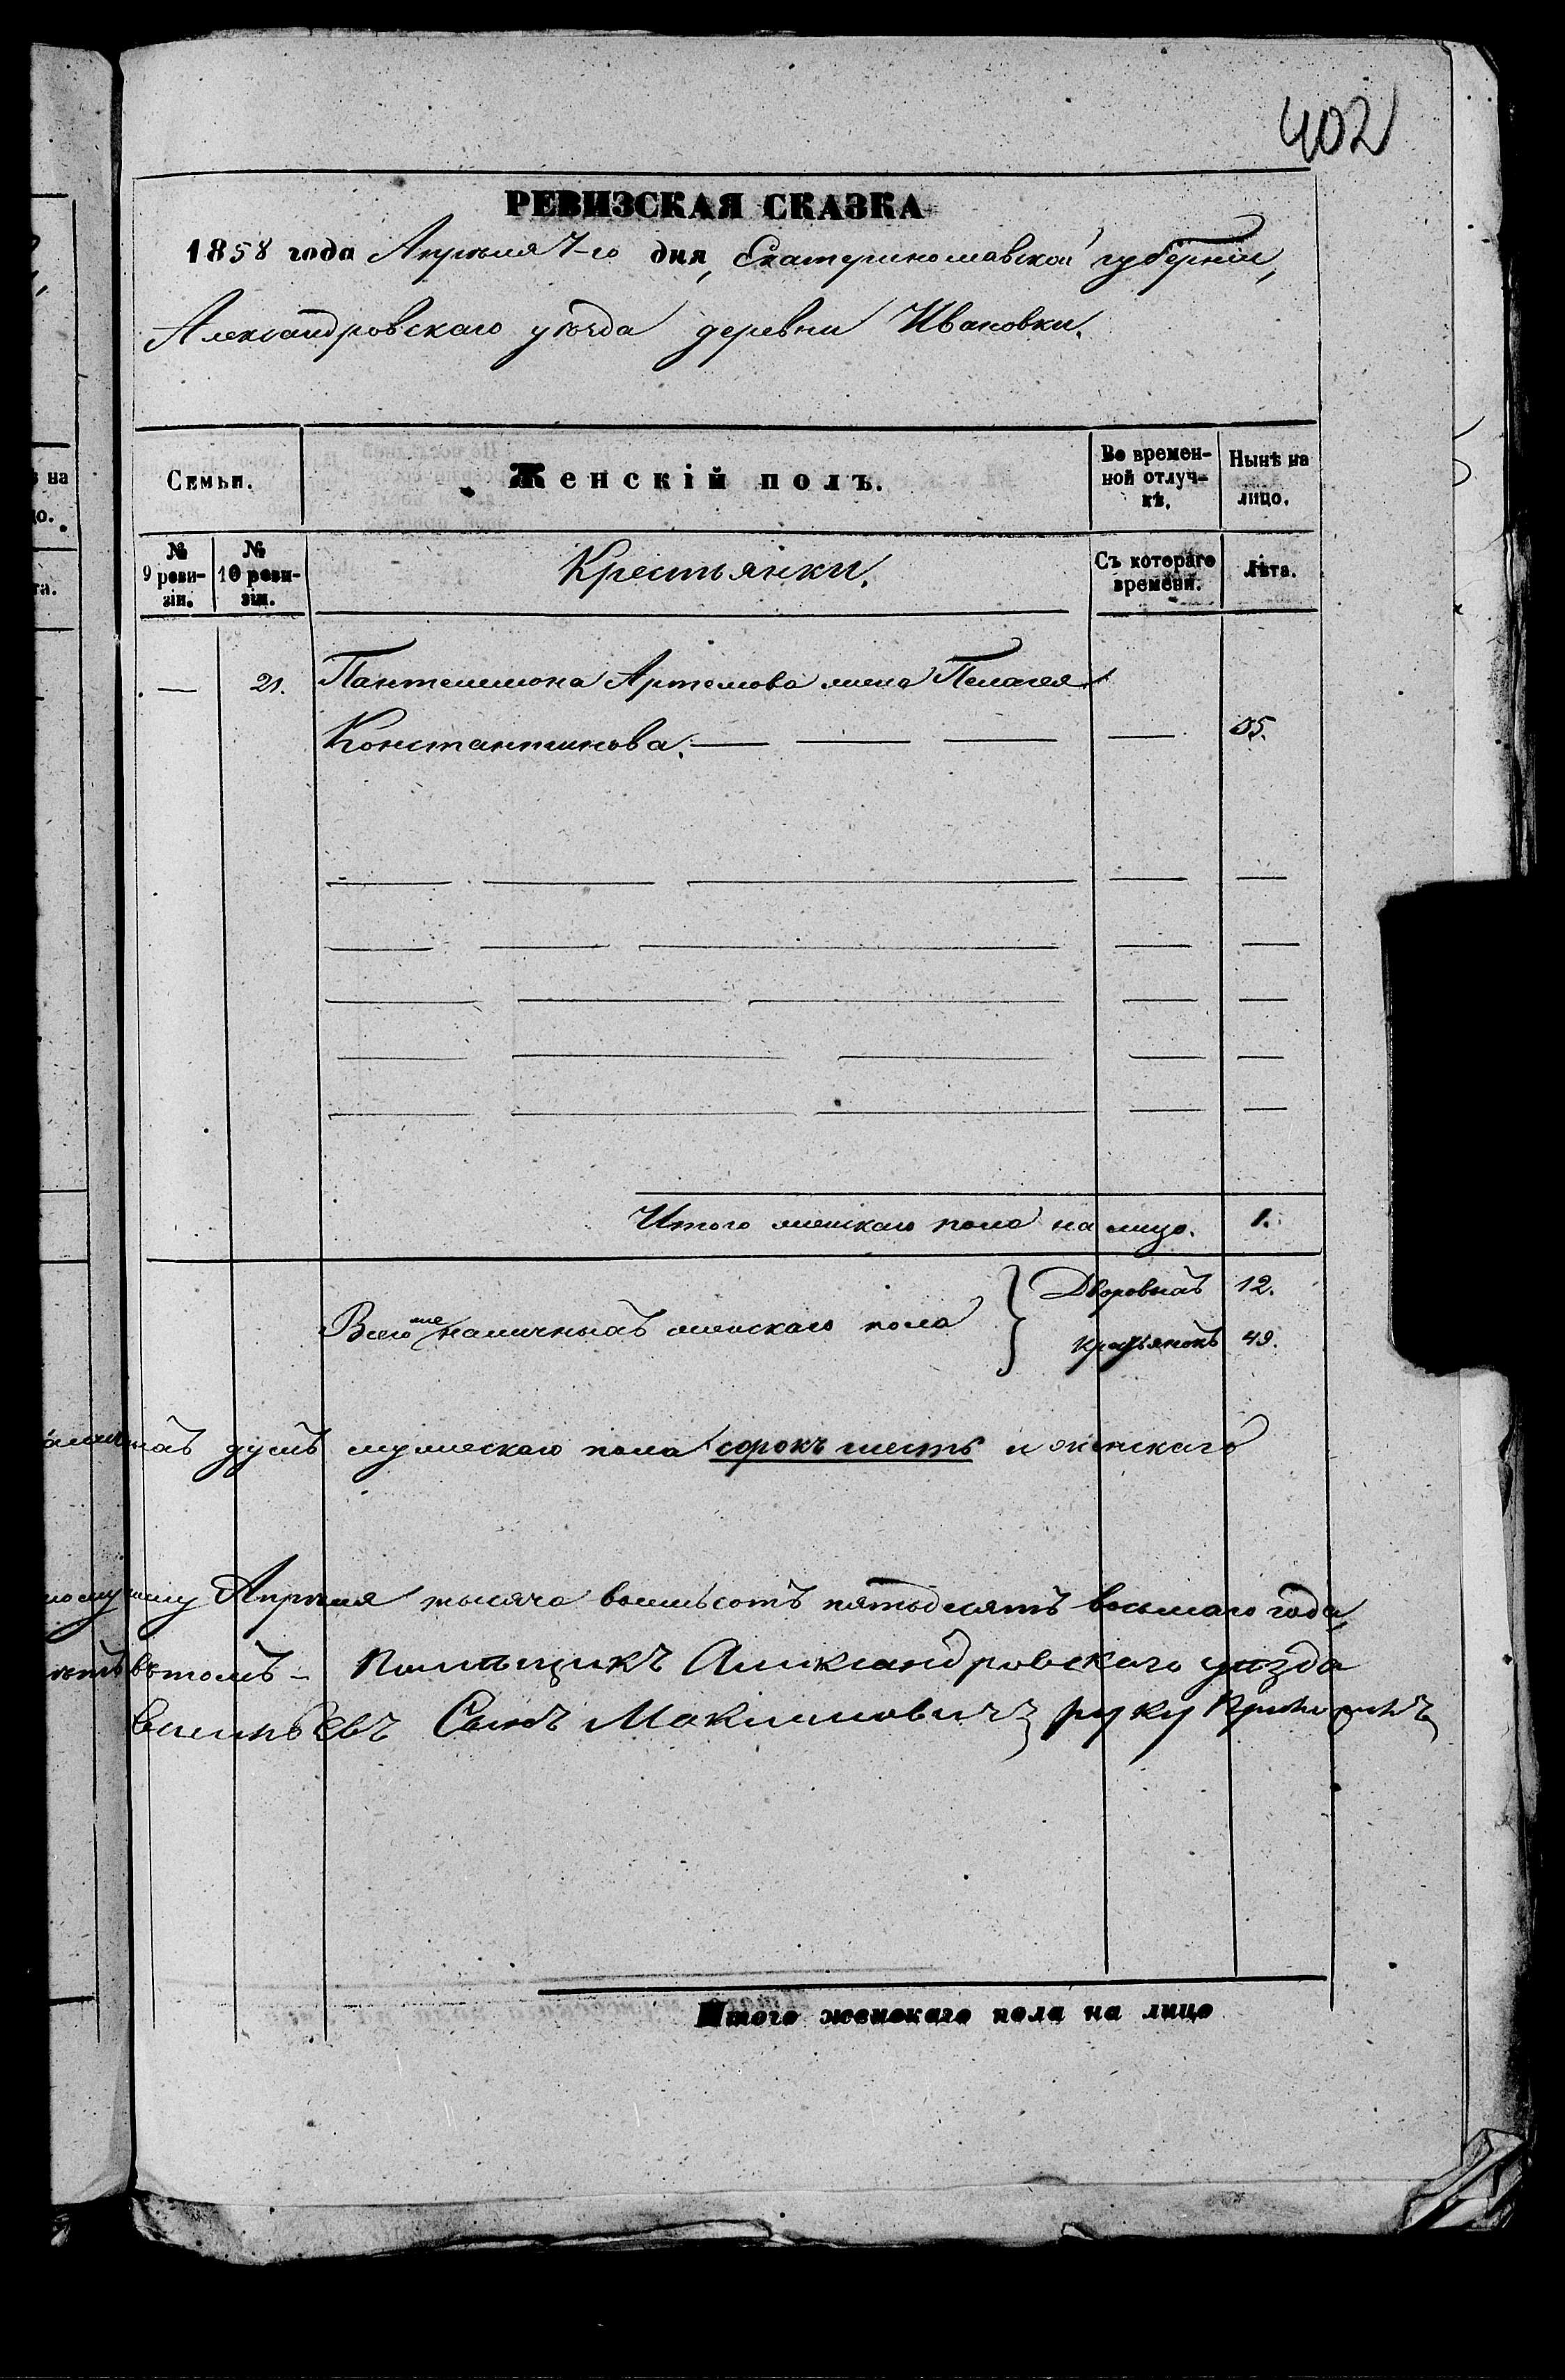 402
РЕВИЗСКАЯ СКАЗКА
1858 года Апрѣля 7-го дня, Екатеринославской губерніи,
Александровскаго уѣзда деревни Ивановки.
Семьи.
Женскій полъ.
Во времен-
ной отлуч-
кѣ.
Нынѣ на
лицо.
№
9 реви-
зіи.
№
10 реви-
зіи.
Крестьянки.
Съ котораго
времени.
Лѣта.
— 21. Пантелимона Артемова жена Пелагея
Константинова. — — — —
Итого женскаго пола на лицо. 1.
Всего же наличныхъ женскаго пола } Дворовыхъ 12.
Крестьянокъ 49.
душъ мужескаго пола сорокъ шесть и женскаго
Апрѣля тысяча восемьсотъ пятьдесятъ восьмаго года,
въ томъ — Помѣщикъ Александровскаго уѣзда
Васильевъ Сынъ Максимовичъ руку приложилъ
Итого женскаго пола на лицо